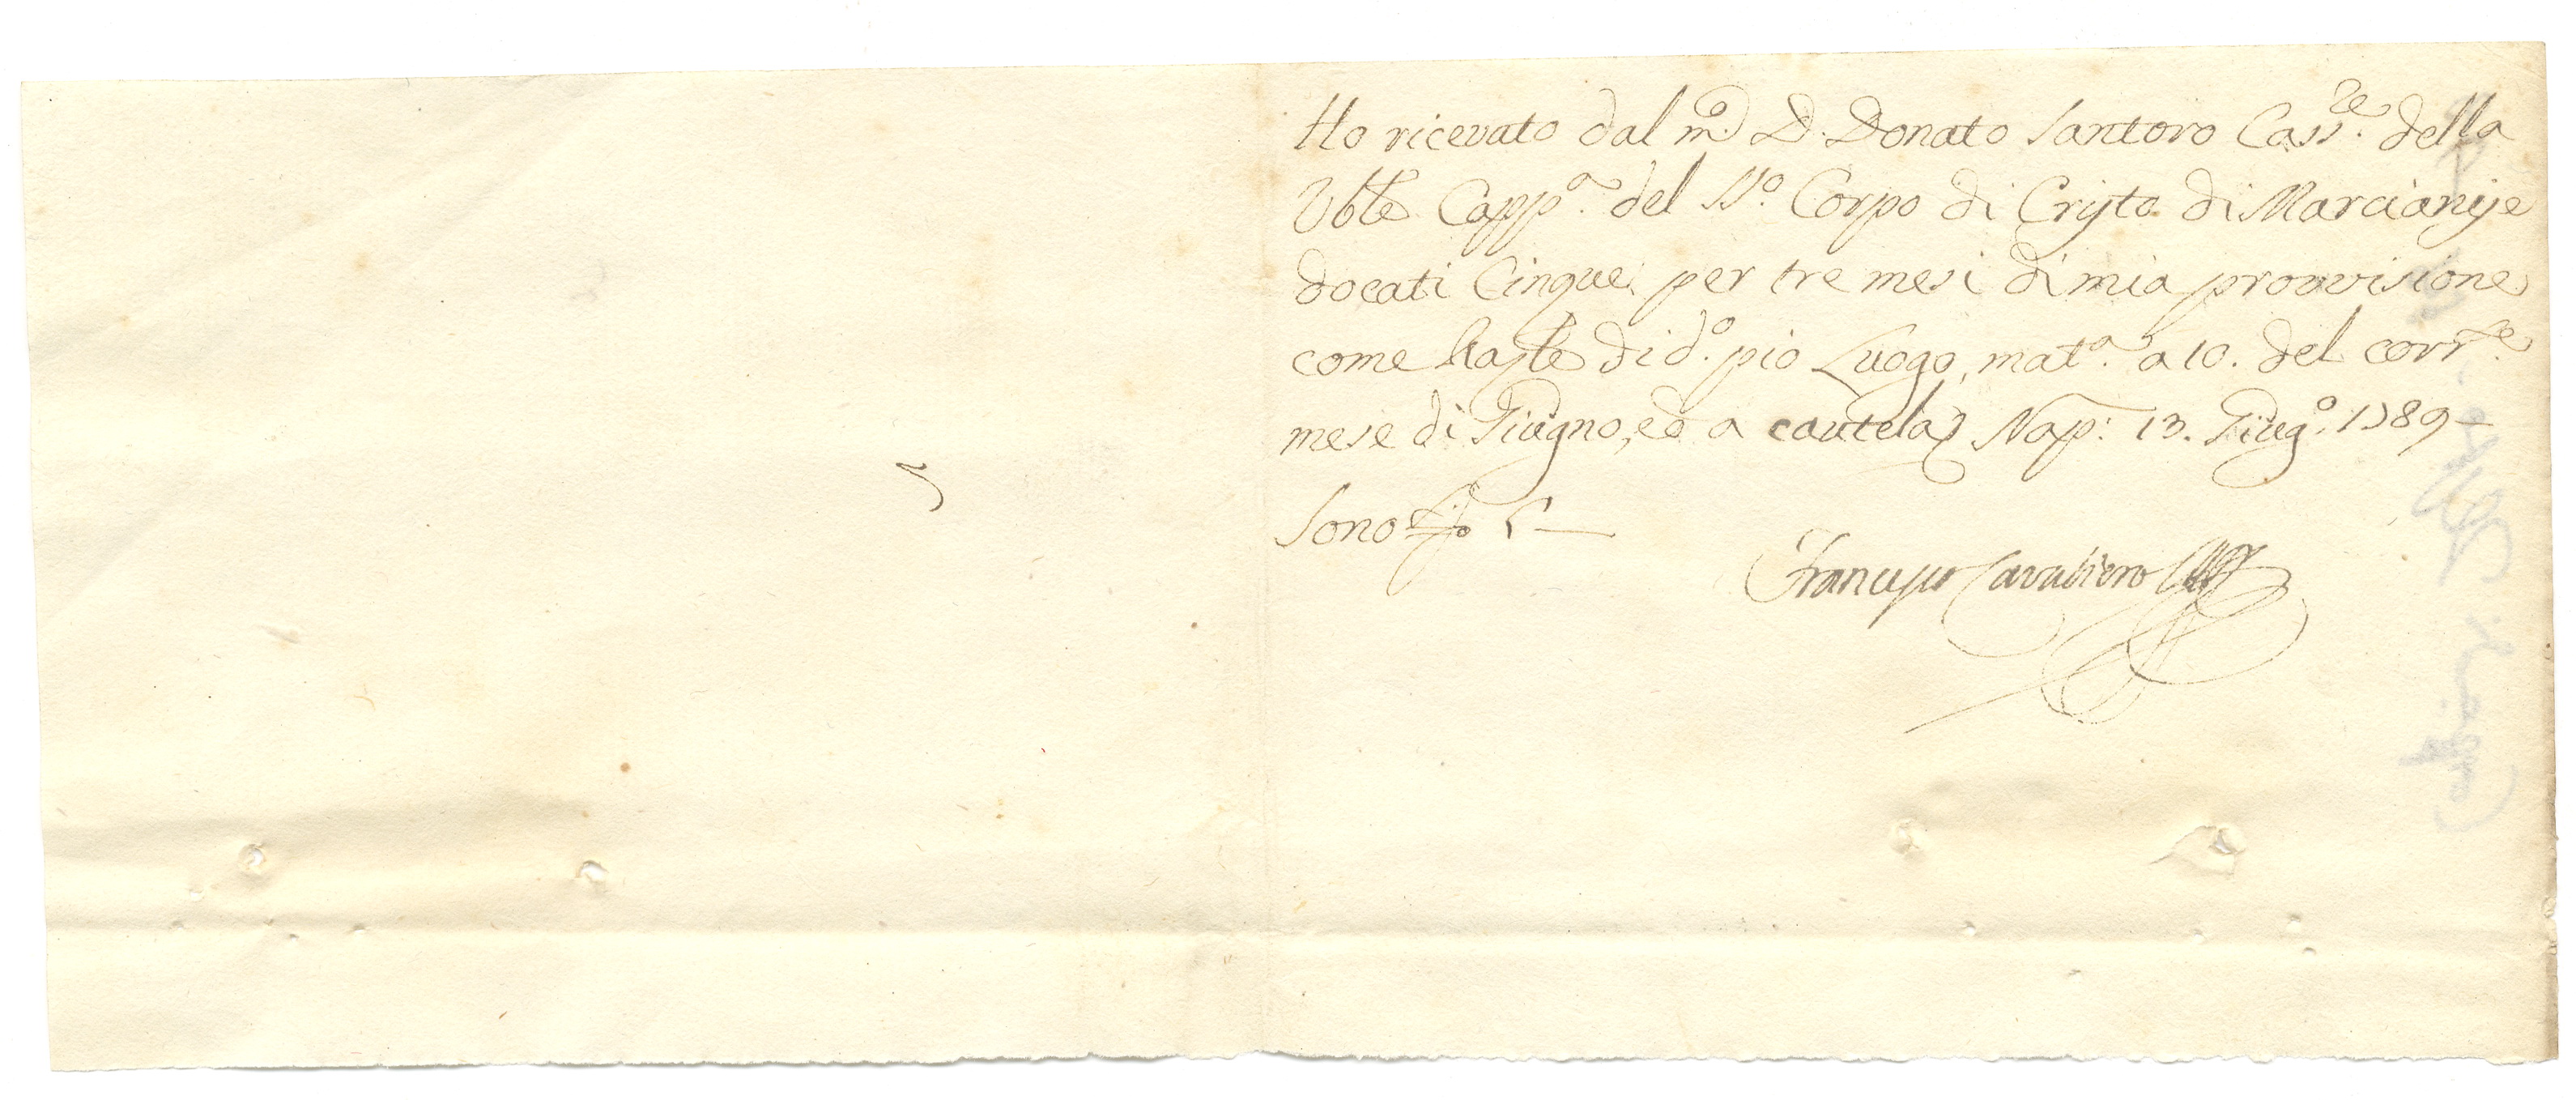 Ho ricevuto dal m.o D. Donato Santoro Cass.re della
Vble Capp.a del SS.o Corpo di Cristo di Marcianise
docati Cinque, per tre mesi di mia provvisione
come di d.o pio Luogo, mat.a a 10. del corr.te
mese di Giugno, ed a cautela Nap: 13. Giug.o 1789
Sono 5
Francesco Cavaliero